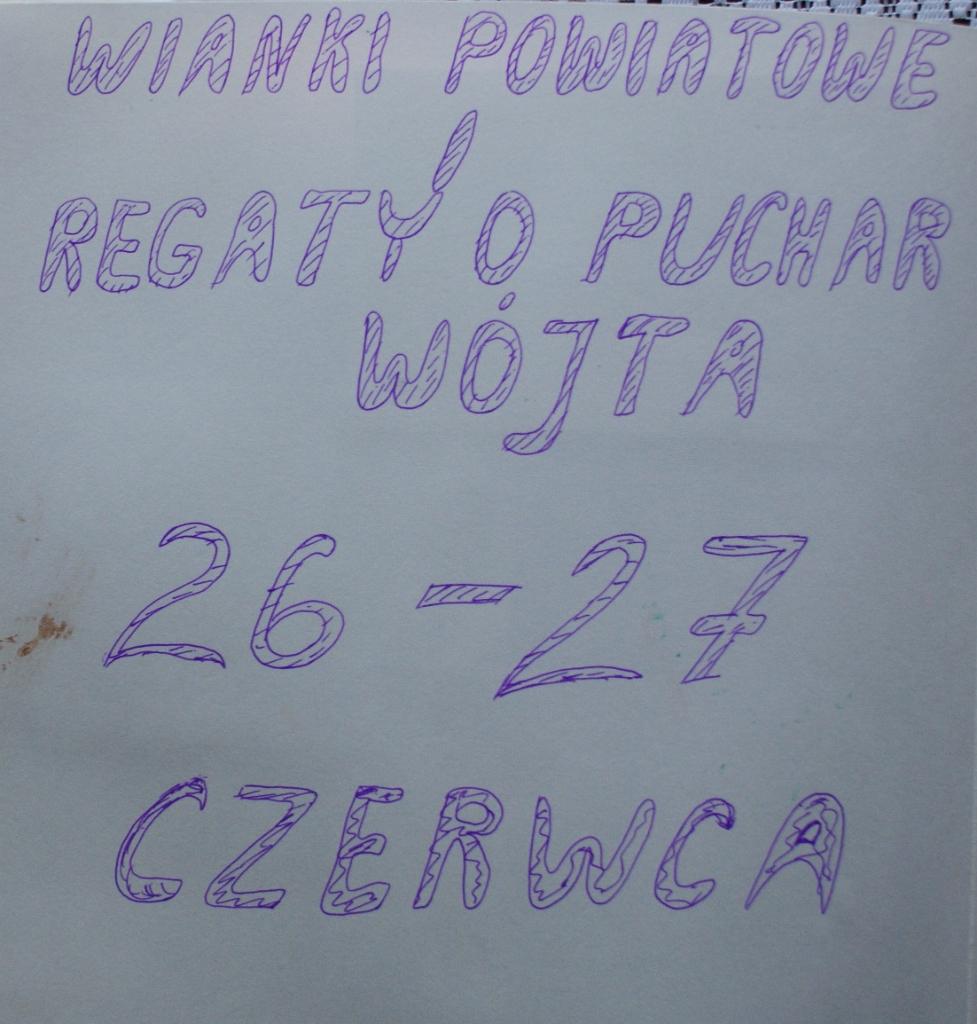 WIANKI POWIATOWE
REGATY O PUCHAR
WÓJTA
26-27
CZERWCA